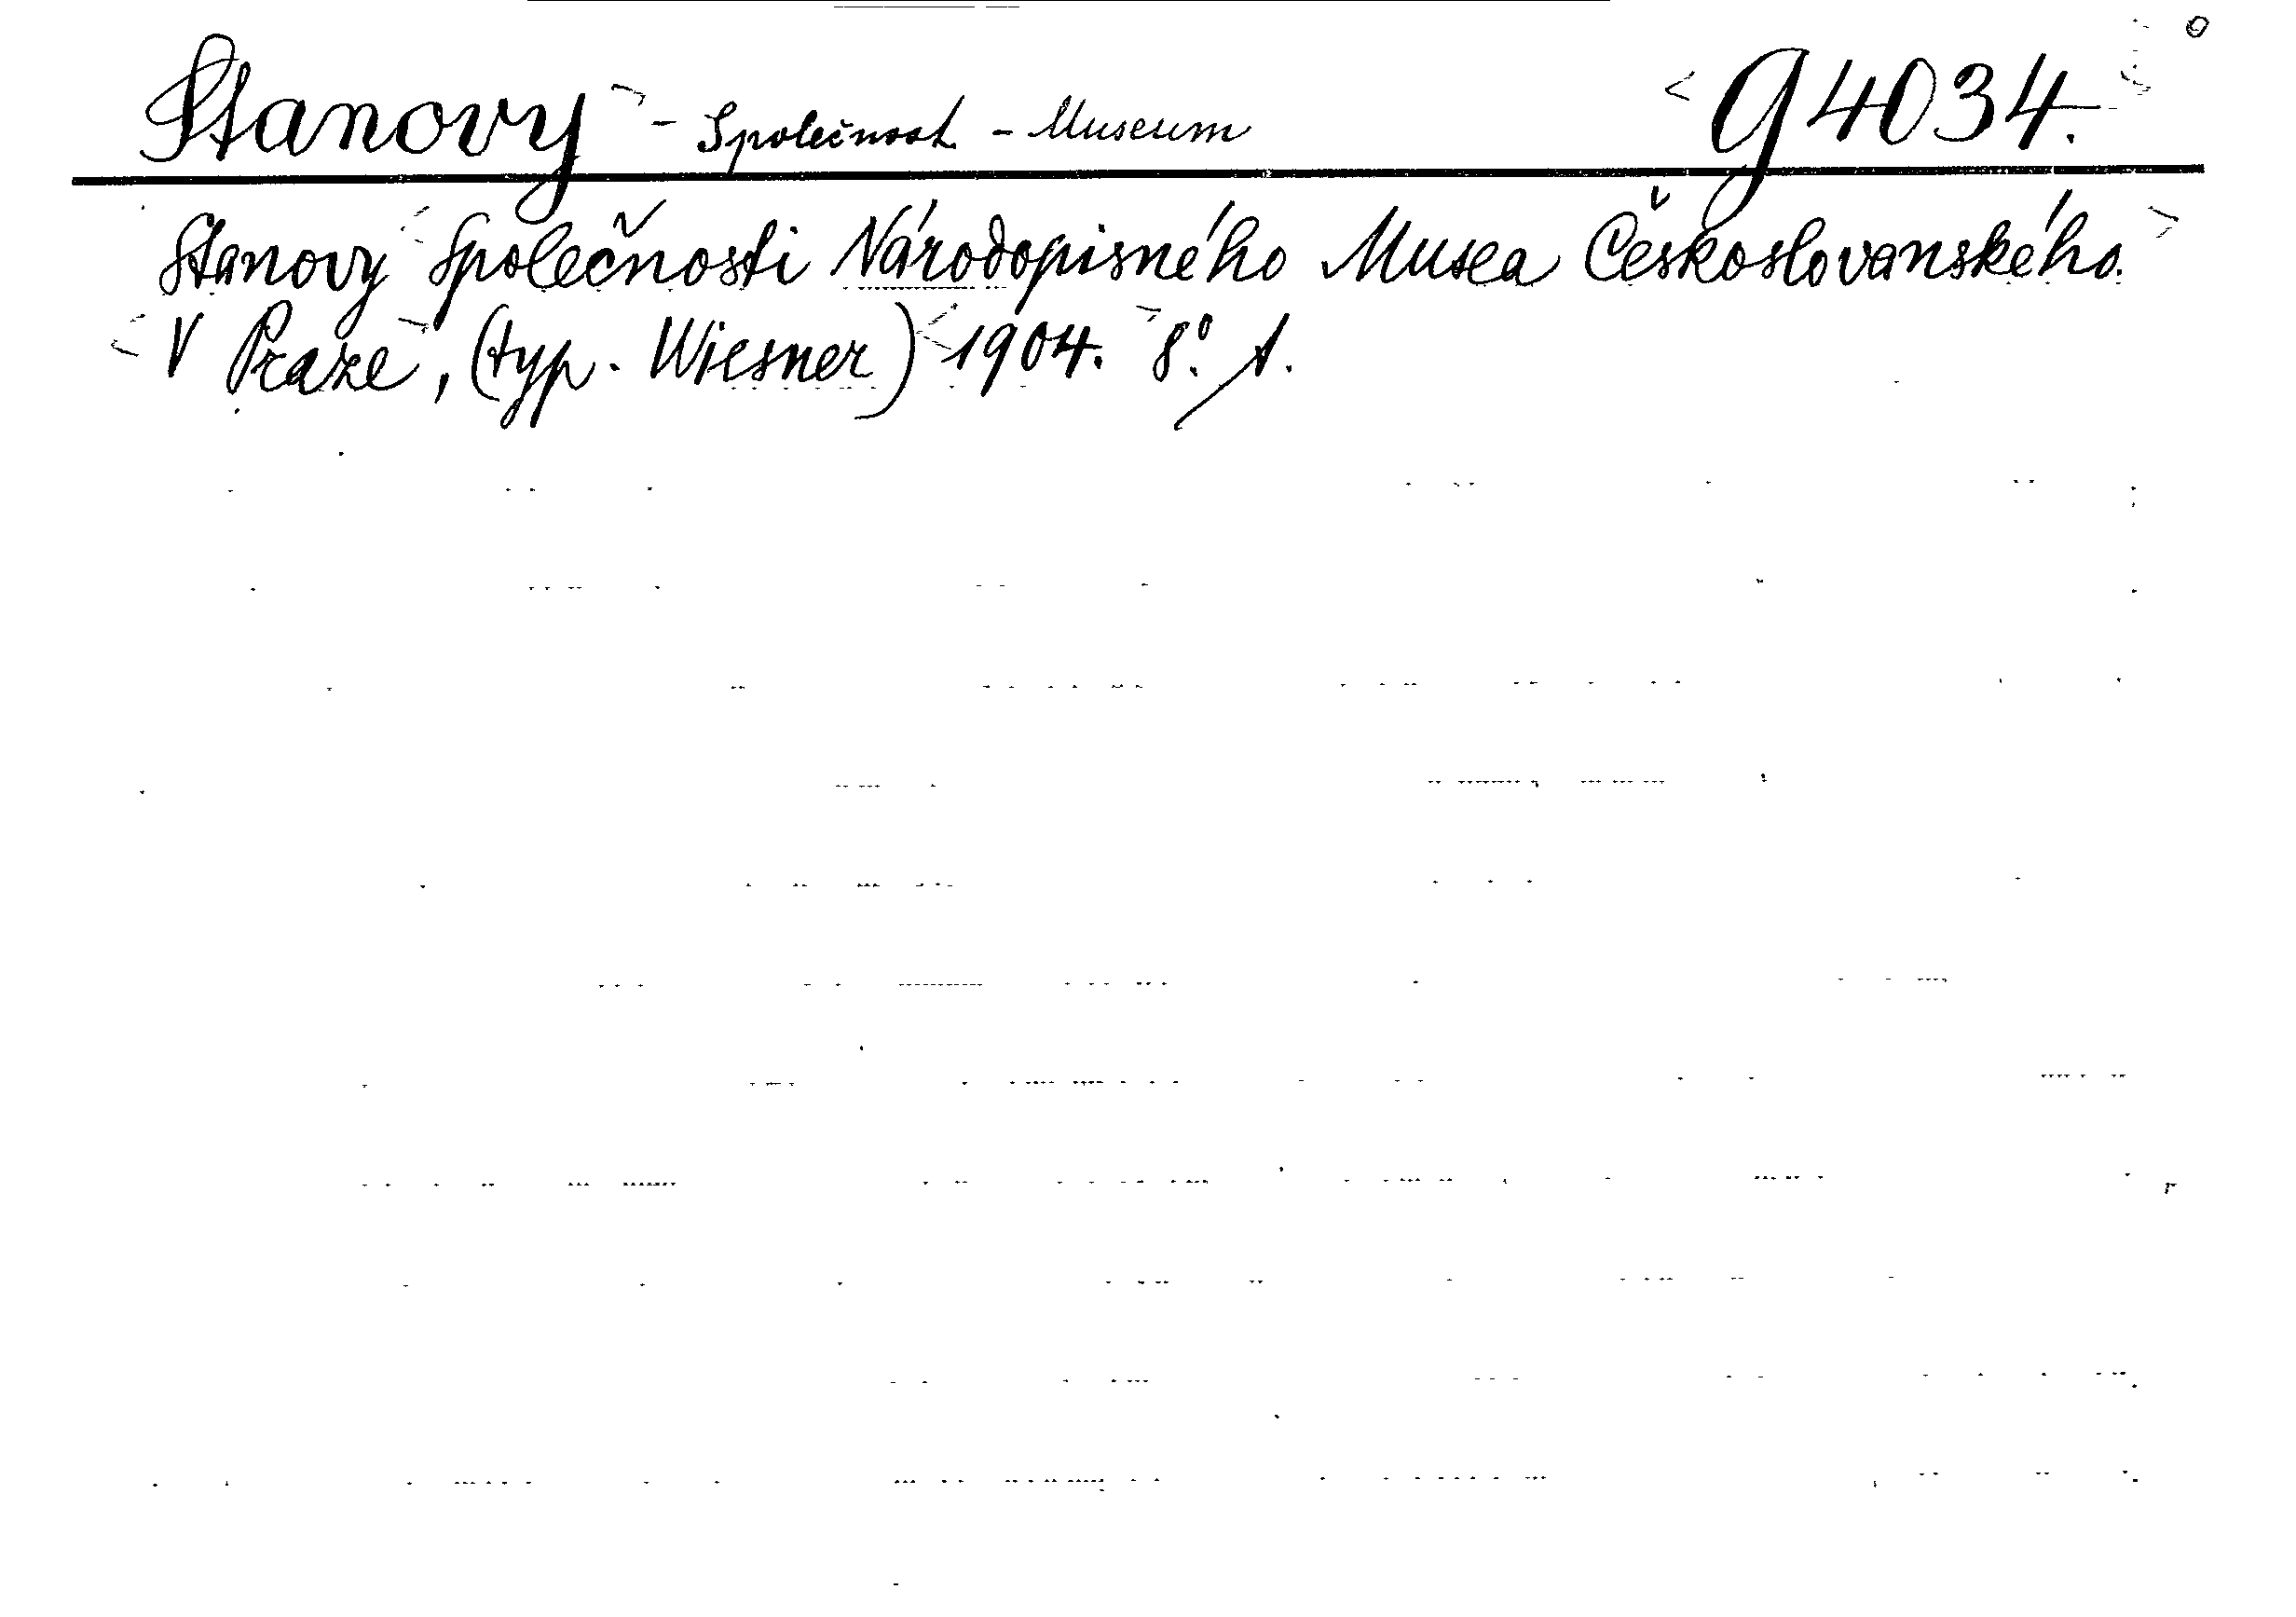 Stanovy - Společnost - Museum g 4034.
Stanovy Společnosti Národopisného Musea Českoslovanského.
V Praze, (typ. Wiesner) 1904. 8º. 1.